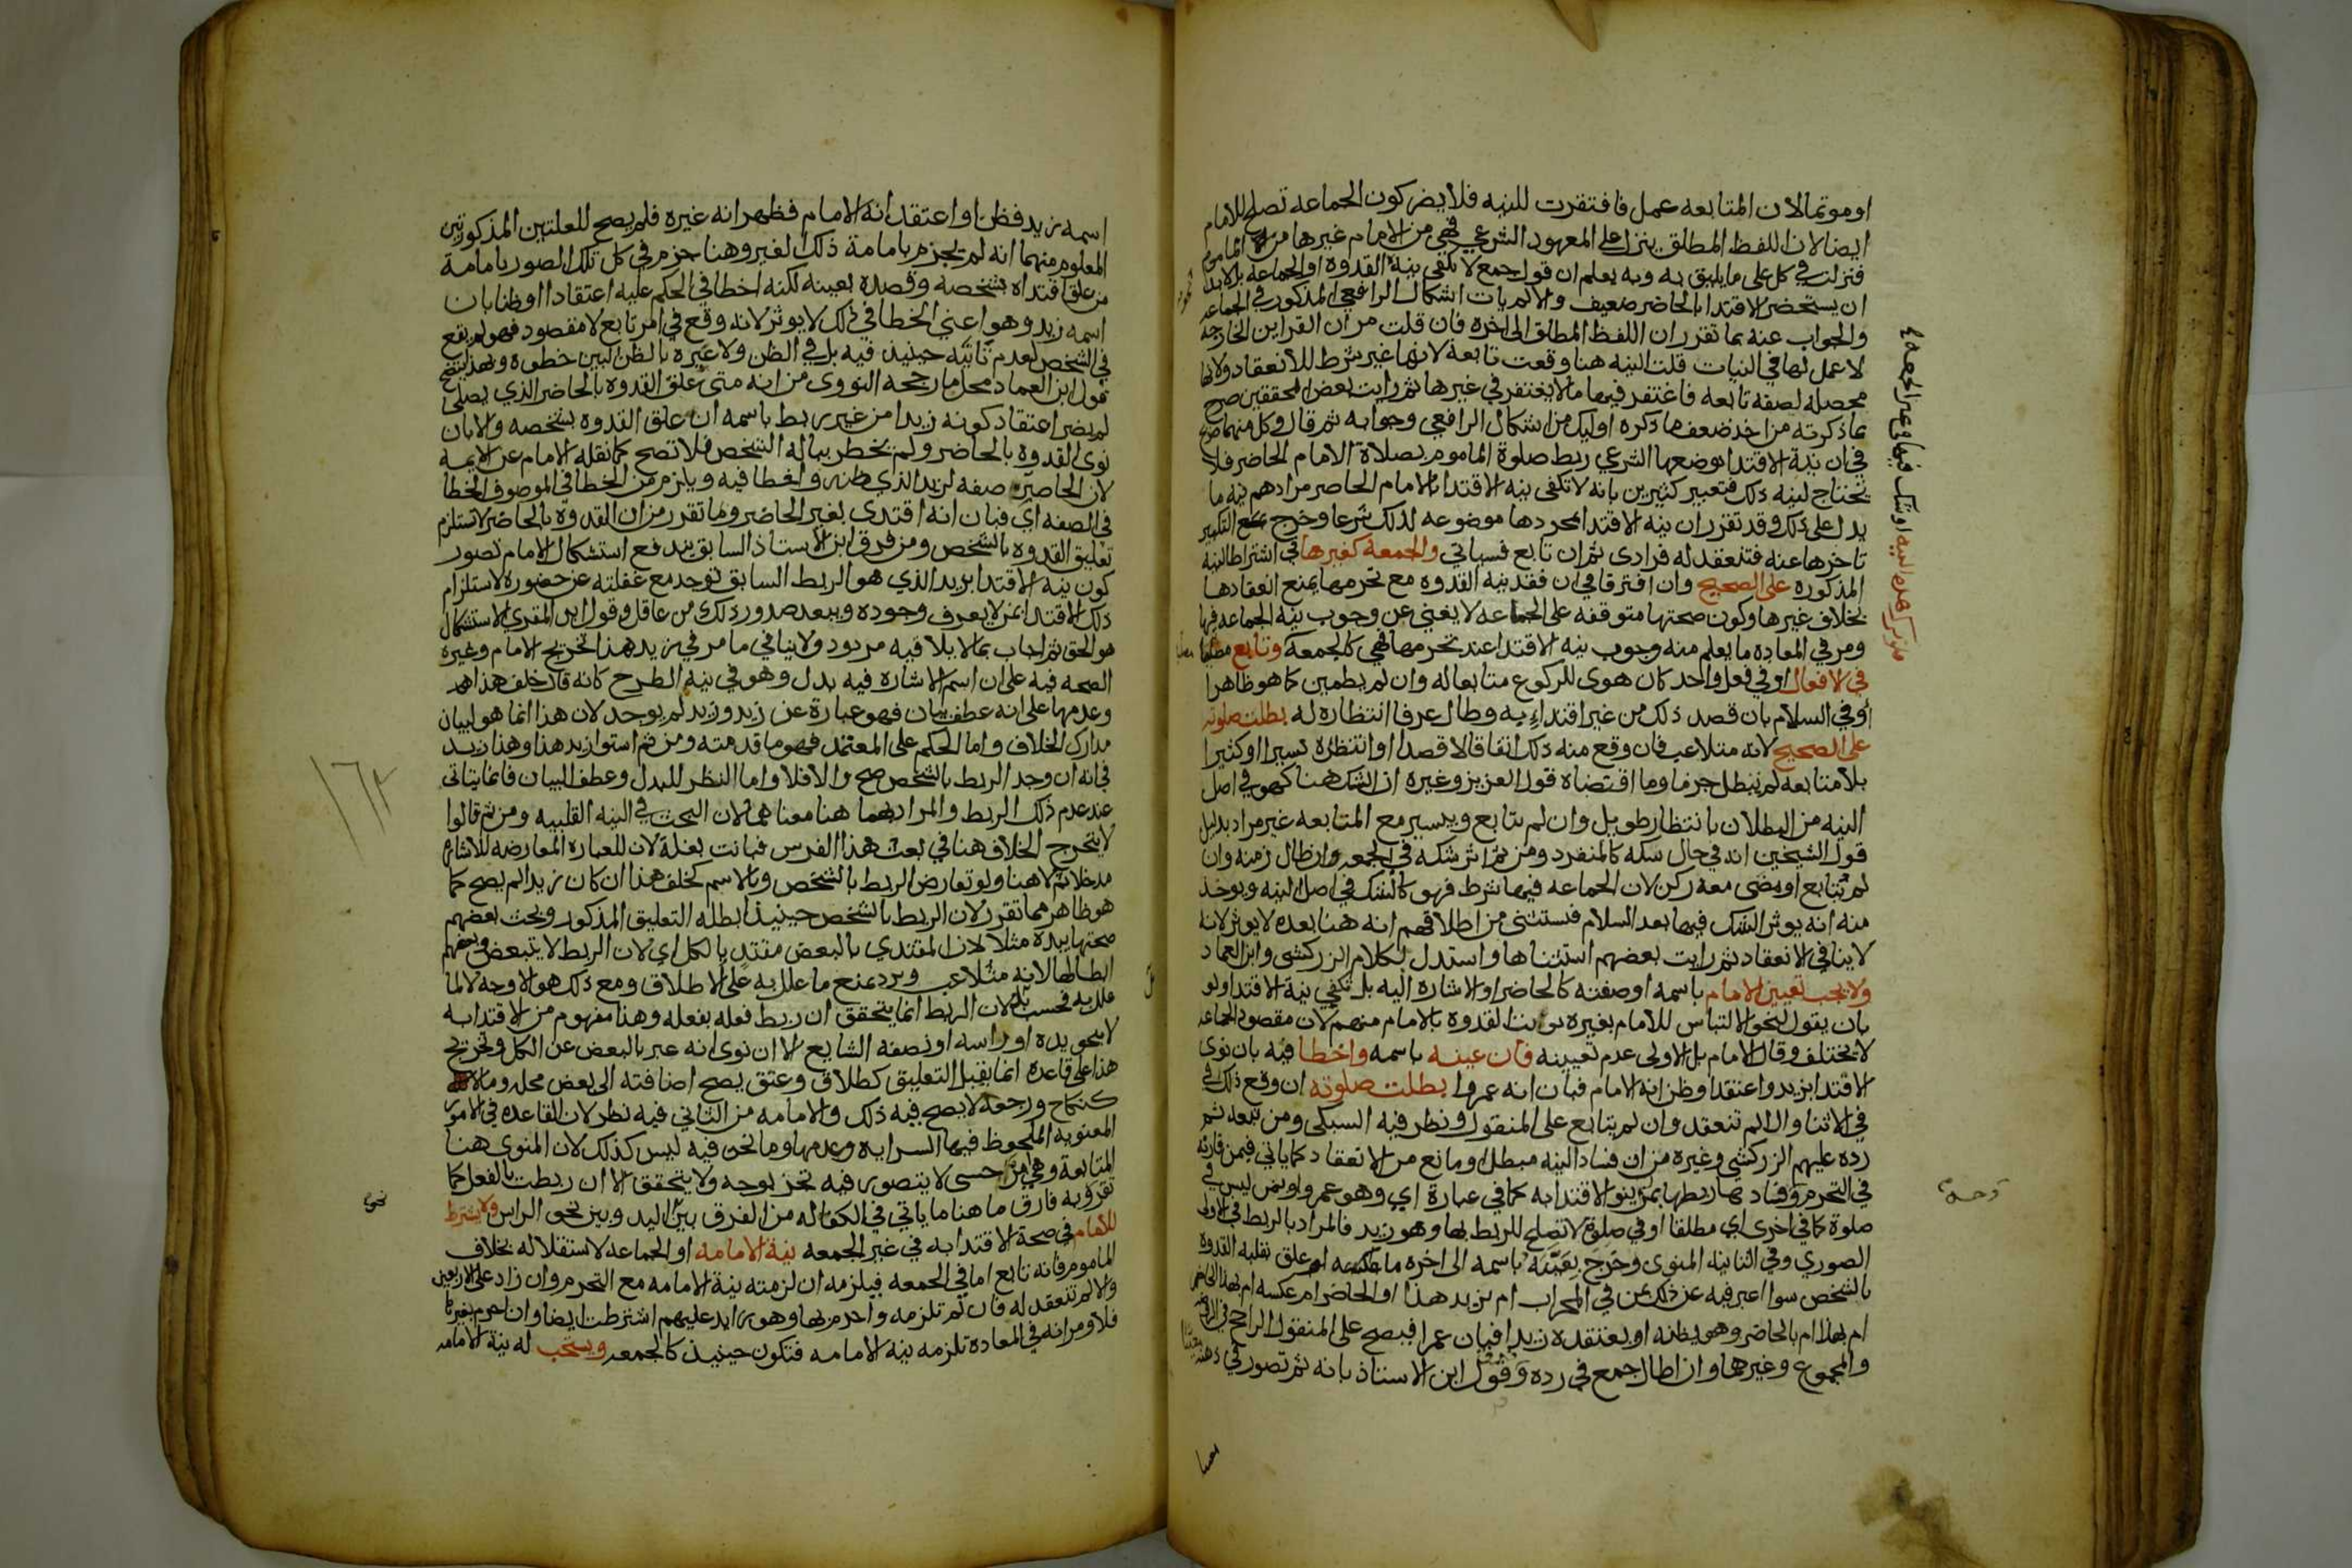 او موتما لان المتابعه عمل فافتقرت للنيه فلا يضر كون الجماعه تصلح للامام
ايضا لان اللفظ المطلق ينزل على المعهود الشرعي فهي من الامام غيرها من الماموم
فنزلت في كل على ما يليق به وبه يعلم ان قول جمع لا تكفي نية القدوه او الجماعه بل لا بد
ان يستحضر الاقتدا بالحاضر ضعيف والا لم يات اشكال الرافعي المذكور في الجماعه
والجواب عنه بما تقرر ان اللفظ المطلق الى اخره فان قلت مر ان القراين الخارجه
لا عمل لها في النيات قلت النيه هنا وقعت تابعة لانها غير شرط للانعقاد ولانها
محصله لصفه تابعه فاغتفر فيها ما لا يغتفر في غيرها ثم رايت بعض المحققين صرح
بما ذكرته من اخذ ضعف ما ذكره اوليك من اشكال الرافعي وجوابه ثم قال وكل منهما صريح
في ان نية الاقتدا بوضعها الشرعي ربط صلوة الماموم بصلاة الامام الحاضر فلا
تحتاج لنيه ذلك فتعبير كثيرين بانه لا تكفي نيه الاقتدا بالامام الحاضر مرادهم نيه ما
يدل على ذلك وقد تقرر ان نيه الاقتدا بمجردها موضوعه لذلك شرعا وخرج بمع التكبير
تاخرها عنه فتنعقد له فرادى ثم ان تابع فسياتي والجمعة كغيرها في اشتراط النيه
المذكوره على الصحيح وان افترقا في ان فقد نيه القدوه مع تحرمها يمنع انعقادها
بخلاف غيرها وكون صحتها متوقفه على الجماعه لا يغني عن وجوب نيه الجماعه فيها
ومر في المعاده ما يعلم منه وجوب نيه الاقتدا عند تحرمها فهي كالجمعة وتابع
في الافعال او في فعل واحد كان هوى للركوع متابعا له وان لم يطمين كما هو ظاهر ا
أو في السلام بان قصد ذلك من غير اقتداء به وطال عرفا انتظاره له بطلت صلوته
على الصحيح لانه متلاعب فان وقع منه ذلك اتفاقا لا قصدا او انتظره يسيرا او كثيرا
بلا متابعه لم تبطل جزما وما اقتضاه قول العزيز وغيره ان الشك هنا كهو في اصل
النيه من البطلان بانتظار طويل وان لم يتابع وبيسير مع المتابعه غير مراد بدليل
قول الشيخين انه في حال شكه كالمنفرد ومن ثم اثر شكه في الجمعه وان طال زمنه وان
لم يتابع او مضى معه ركن لان الجماعه فيها شرط فهو كالشك في اصل النيه ويوخذ
منه انه يوثر الشك فيها بعد السلام فتستثنى من اطلاقهم انه هنا بعده لا يوثر لانه
لا ينافي الانعقاد ثم رايت بعضهم استثناها واستدل بكلام الزركشي وابن العماد
ولا يجب تعيين الامام باسمه او صفته كالحاضر او الاشاره اليه بل تكفي نية الاقتدا ولو
بان يقول لنحو التباس للامام بغيره نويت القدوه بالامام منهم لان مقصود الجماعه
لا يختلف وقال الامام بل الاولى عدم تعيينه فان عينه باسمه واخطا فيه بان نوى
الاقتدا بزيد واعتقد او ظن انه الامام فبان انه عمرو ا بطلت صلوته ان وقع ذلك في
في الاثنا والا لم تنعقد وان لم يتابع على المنقول ونظر فيه السبكي ومن تبعه ثم
رده عليهم الزركشي وغيره من ان فساد النيه مبطل او مانع من الانعقاد كما ياتي فيمن قارنه
في التحرم وفساد بها ربطها بمن لم ينو الاقتدا به كما في عبارة اي وهو عمرو او بمن ليس في
صلوة كما في اخرى اي مطلقا او في صلوة لا تصلح للربط بها وهو زيد فالمراد بالربط في الاولى
الصوري وفي الثانيه المنوى وخرج بِعَيَّنَهُ باسمه الى اخره ما لو علق بقلبه القدوة
بالشخص سوا اعبر فيه عن ذلك بمن في المحراب ام بزيد هذا او الحاضر ام عكسه ام بهذا الحاضر
ام بهذا ام بالحاضر وهو يظنه او يعتقده زيدا فبان عمرا فيصح على المنقول الراجح في الروضه
والمجموع وغيرهما وان اطال جمع في رده وقول ابن الاستاذ بانه ثم تصور في ذهنه
اسمه زيد فظن او اعتقد انه الامام فظهر انه غيره فلم يصح للعلتين المذكورتين
المعلوم منهما انه لم يجزم بامامة ذلك الغير وهنا جزم في كل تلك الصور بامامة
من علق اقتداه بشخصه وقصده بعينه لكنه اخطا في الحكم عليه اعتقادا او ظنا بان
اسمه زيد وهو اعني الخطا في ذلك لا يوثر لانه وقع في امر تابع لا مقصود فهو لم يقع
في الشخص لعدم تاثيه حينيذ فيه بل في الظن ولا عبره بالظن البين خطوه وبهذا يتضح
قول ابن العماد محل ما رجحه النووى من انه متى علق القدوه بالحاضر الذي يصلى
لم يضر اعتقاد كونه زيدا من غير ربط باسمه ان علق القدوه بشخصه والا بان
نوى القدوه بالحاضر ولم يخطر بباله الشخص فلا تصح كما نقله الامام عن الايمه
لان الحاضر صفه لزيد الذي ظنه واخطا فيه ويلزم من الخطا في الموصوف الخطا
في الصفه اي فبان انه اقتدى بغير الحاضر وما تقرر من ان القدوه بالحاضر لا تستلزم
تعليق القدوه بالشخص ومن فرق ابن الاستاذ السابق يندفع استشكال الامام تصور
كون نيه الاقتدا بزيد الذي هو الربط السابق توجد مع غفلته عن حضوره لاستلزام
ذلك الاقتدا بمن لا يعرف وجوده ويبعد صدور ذلك من عاقل وقول ابن المقري الاستشكال
هو الحق ثم اجاب بما لا يلاقيه مردود ولا ينافي ما مر في بزيد هذا تخريج الامام وغيره
الصحه فيه على ان اسم الاشاره فيه بدل وهو في نيه الطرح كانه قال خلف هذا
وعدمها على انه عطف بيان فهو عبارة عن زيد وزيد لم يوجد لان هذا انما هو لبيان
مدارك الخلاف واما الحكم على المعتمد فهو ما قدمته ومن ثم استوا زيد هذا وهذا زيد
في انه ان وجد الربط بالشخص صح والا فلا واما النظر للبدل وعطف البيان فانما يتاتى
عند عدم ذلك الربط والمراد بهما هنا معناهما لان البحث في النيه القلبيه ومن ثم قالوا
لا يتخرج الخلاف هنا في بعت هذا الفرس فبانت بغلة لان للعباره المعارضه للاشاره
مدخلا ثم لا هنا ولو تعارض الربط بالشخص وبالاسم كخلف هذا ان كان زيدا لم يصح كما
هو ظاهر مما تقرر لان الربط بالشخص حينيذ ابطله التعليق المذكور وبحث بعضهم
صحتها بيده مثلا لان المقتدي بالبعض مقتدٍ بالكل اي لان الربط لا يتبعض وبعضهم
ابطالها لانه متلاعب ويرد بمنع ما علل به على الاطلاق ومع ذلك هو الاوجه لا لما
علل به فحسب بل لان الربط انما يتحقق ان ربط فعله بفعله وهذا مفهوم من الاقتدا به
لا بنحو يده او راسه او نصفه الشايع الا ان نوى انه عبر بالبعض عن الكل وتخريج
هذا على قاعدة انما يقبل التعليق كطلاق وعتق يصح اضافته الى بعض محله وما لا
كنكاح ورجعه لا يصح فيه ذلك والامامه من الثاني فيه نظر لان القاعده في الامور
المعنويه الملحوظ فيها السرايه وعدمها وما نحن فيه ليس كذلك لان المنوى هنا
المتابعة وهي امر حسي لا يتصور فيه تجز بوجه ولا يتحقق الا ان ربطت بالفعل كما
تقرر وبه فارق ما هنا ما ياتي في الكفاله من الفرق بين اليد وبين نحو الراس ولا يشترط
للامام في صحة الاقتدا به في غير الجمعه نية الامامه او الجماعه لاستقلاله بخلاف
الماموم فانه تابع اما في الجمعه فيلزمه ان لزمته نية الامامه مع التحرم وان زاد على الاربعين
والا لم تنعقد له فان لم تلزمه واحرم بها وهو زايد عليهم اشترطت ايضا وان احرم بغيرها
فلا ومر انه في المعاده تلزمه نيه الامامه فتكون حينيذ كالجمعه ويستحب له نية الامامه
١٦٢